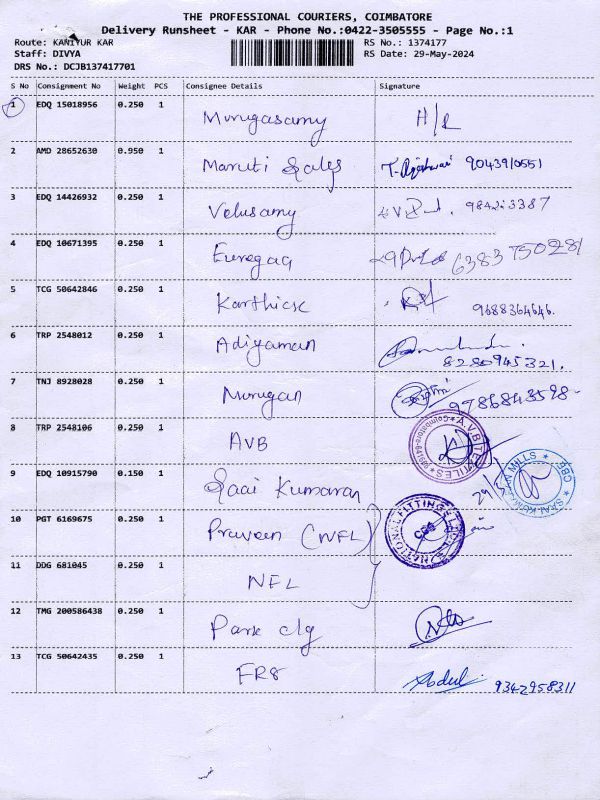 THE PROFESSIONAL COURIERS, COIMBATORE
Delivery Runsheet - KAR - Phone No.:0422-3505555 - Page No.:1
Route: KANIYUR KAR RS No.: 1374177
Staff: DIVYA RS Date: 29-May-2024
DRS No.: DCJB137417701
S No Consignment No Weight PCS Consignee Details Signature
1 EDQ 15018956 0.250 1 Murugasamy H/R
2 AMD 28652630 0.950 1 Maruti Sales 9043910551
3 EDQ 14426932 0.250 1 Velusamy
4 EDQ 10671395 0.250 1 6383750281
5 TCG 50642846 0.250 1 Karthick 9688364646.
6 TRP 2548012 0.250 1 Adiyaman
8280945321.
7 TNJ 8928028 0.250 1 Murugan 9786843598-
8 TRP 2548106 0.250 1 AVB
9 EDQ 10915790 0.150 1 Saai Kumaran
10 PGT 6169675 0.250 1 Praveen (NFL)
11 DDG 681045 0.250 1 NFL
12 TMG 200586438 0.250 1 Park clg
13 TCG 50642435 0.250 1 FR8 Abdul 9342958311